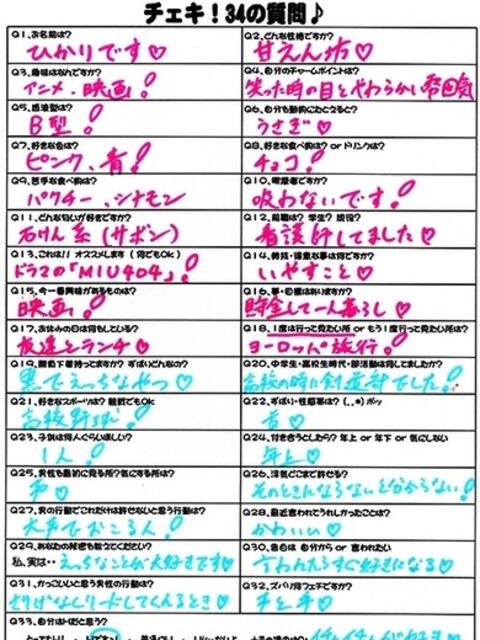 チェキ！34の質問♪
Q1、お名前は？
ひかりです♡
Q2、どんな性格ですか？
甘えん坊♡
Q3、趣味はなんですか？
アニメ、映画！
Q4、自分のチャームポイントは？
笑った時の目とやわらかい雰囲気
Q5、血液型は？
B型！
Q6、自分を動物にたとえると？
うさぎ♡
Q7、好きな色は？
ピンク、青！
Q8、好きな食べ物は？ or ドリンクは？
チョコ！
Q9、苦手な食べ物は？
パクチー、シナモン
Q10、喫煙者ですか？
吸わないです！
Q11、どんな匂いが好きですか？
石けん系（サボン）
Q12、前職は？ 学生？ 現役？
看護師してました♡
Q13、これは!! オススメします（何でもOk）
ドラマの「MIU404」！
Q14、特技・得意な事は何ですか？
いやすこと♡
Q15、今一番興味があるものは？
映画！
Q16、夢・目標はありますか？
貯金して一人暮らし♡
Q17、お休みの日は何をしている？
友達とランチ♡
Q18、1度は行って見たい所 or もう1度行って見たい所は？
ヨーロッパ旅行！
Q19、勝負下着持ってますか？ ずばりどんなの？
黒でえっちなやつ♡
Q20、中学生・高校生時代・部活動は何してましたか？
高校の時に剣道部でした！
Q21、好きなスポーツは？ 観戦でもOk
高校野球！
Q22、ずばり・性感帯は？（．．*）ポッ
首♡
Q23、子供は何人ぐらいほしい？
1人！
Q24、付き合うとしたら？ 年上 or 年下 or 気にしない
年上♡
Q25、男性を最初に見る所？気にする所は？
声♡
Q26、浮気どこまで許せる？
そのときにならないと分からない！
Q27、男の行動でこれだけは許せないと思う行動は？
大声でおこる人！
Q28、最近言われてうれしかったことは？
かわいい♡
Q29、あなたの秘密を教えてください？
私、実は・・えっちなことが大好きです♡
Q30、告白は 自分から or 言われたい
言われたらすぐ好きになる♡
Q31、かっこいいと思う男性の行動は？
さりげなくリードしてくれるとき♡
Q32、ズバリ何フェチですか？
手と声♡
Q33、自分はMだと思う？